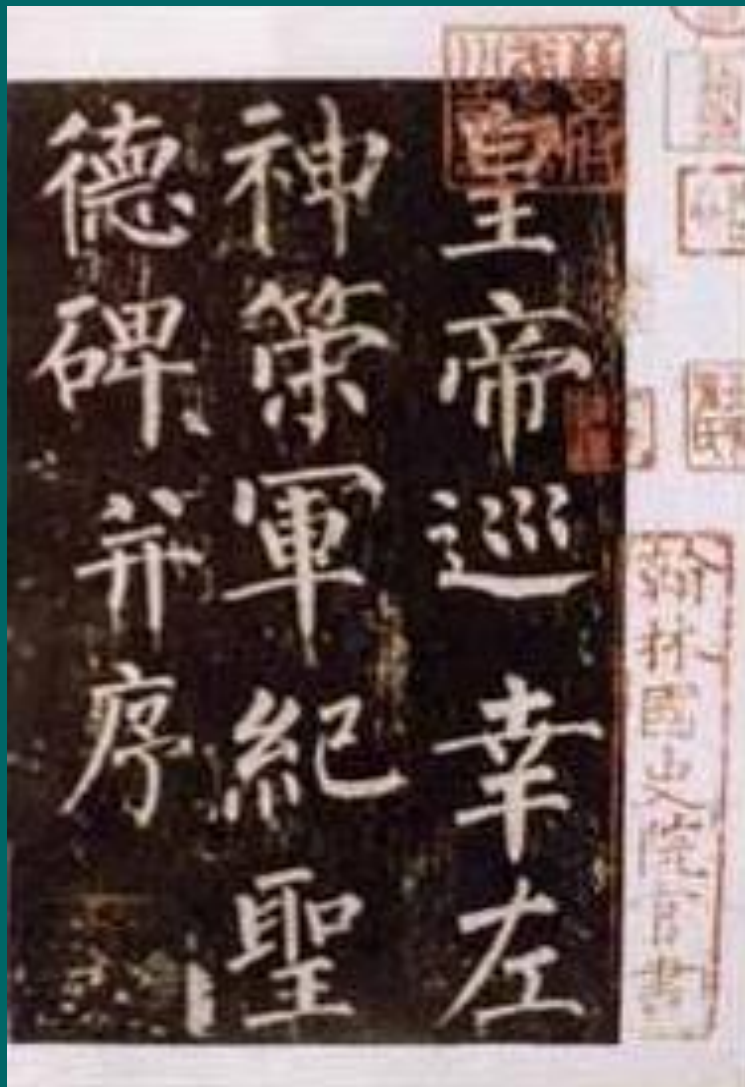 皇帝巡幸左
神策軍紀聖
德碑并序
翰林國史院官書